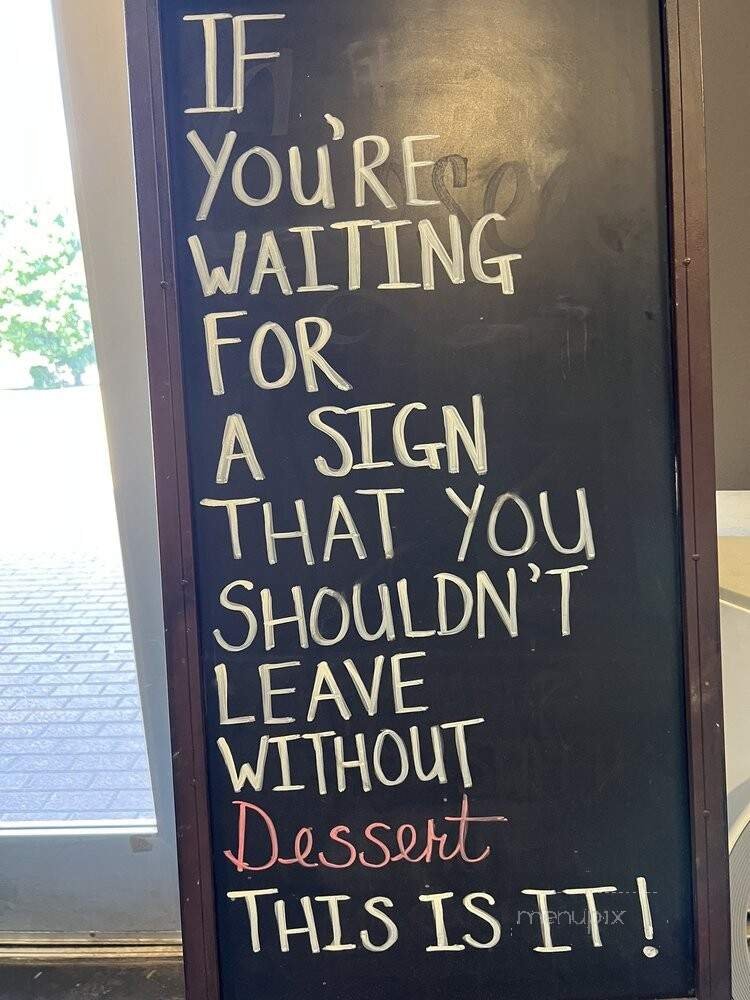 IF
YOU'RE
WAITING
FOR
A SIGN
THAT YOU
SHOULDN'T
LEAVE
WITHOUT
Dessert
THIS IS IT!
menupix